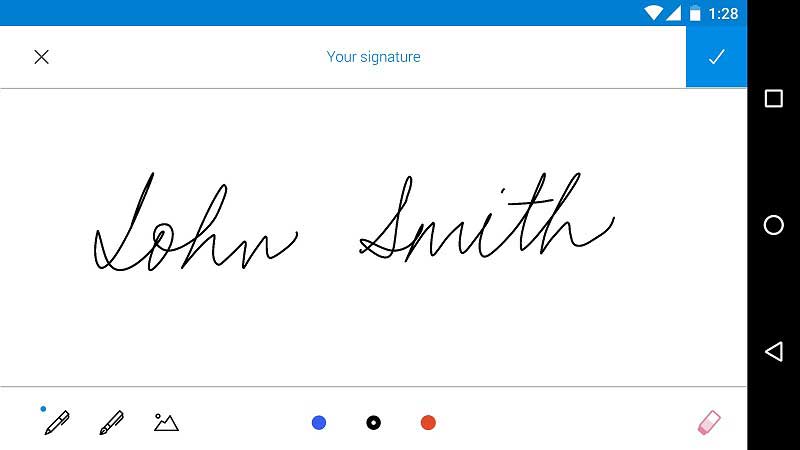 1:28
Your signature
John Smith